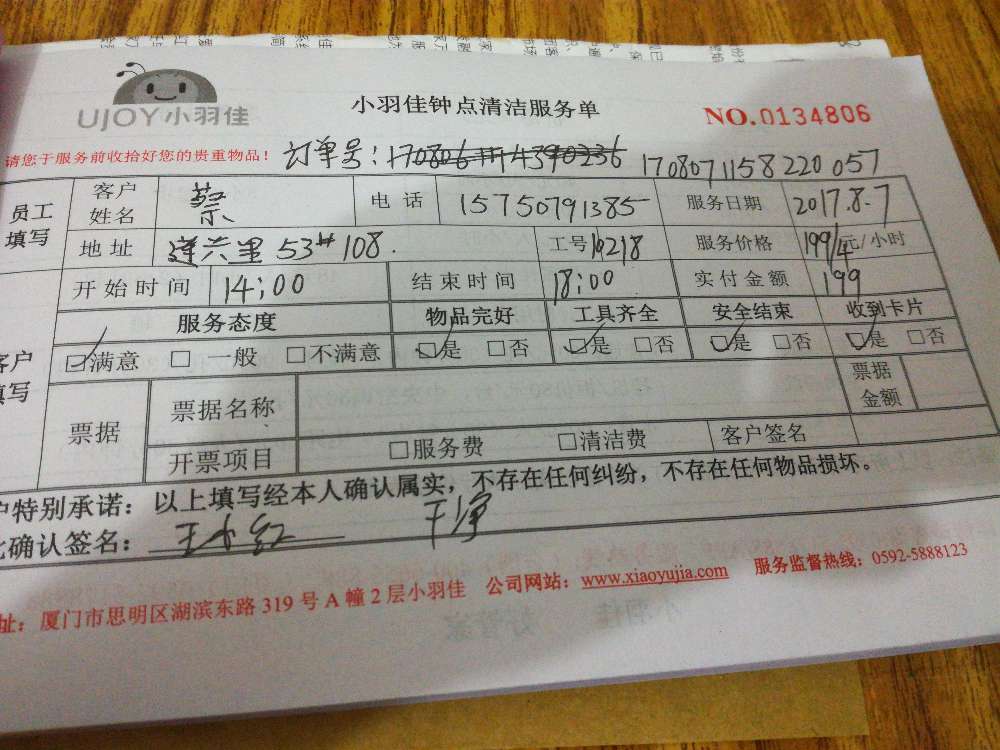 UJOY小羽佳
小羽佳钟点清洁服务单
NO.0134806
请您于服务前收拾好您的贵重物品！
订单号：
1708071158220057
员工填写 客户姓名 蔡 电话 15750791385 服务日期 2017.8.7
地址 莲六里53# 108. 工号 10218 服务价格 199/4元/小时
开始时间 14:00 结束时间 18:00 实付金额 199
服务态度 物品完好 工具齐全 安全结束 收到卡片
客户填写 ☑满意 □一般 □不满意 ☑是 □否 ☑是 □否 ☑是 □否 ☑是 □否
票据 票据名称 票据金额
开票项目 □服务费 □清洁费 客户签名
户特别承诺：以上填写经本人确认属实，不存在任何纠纷，不存在任何物品损坏。
确认签名：王小红
址：厦门市思明区湖滨东路319号A幢2层小羽佳 公司网站：www.xiaoyujia.com 服务监督热线：0592-5888123